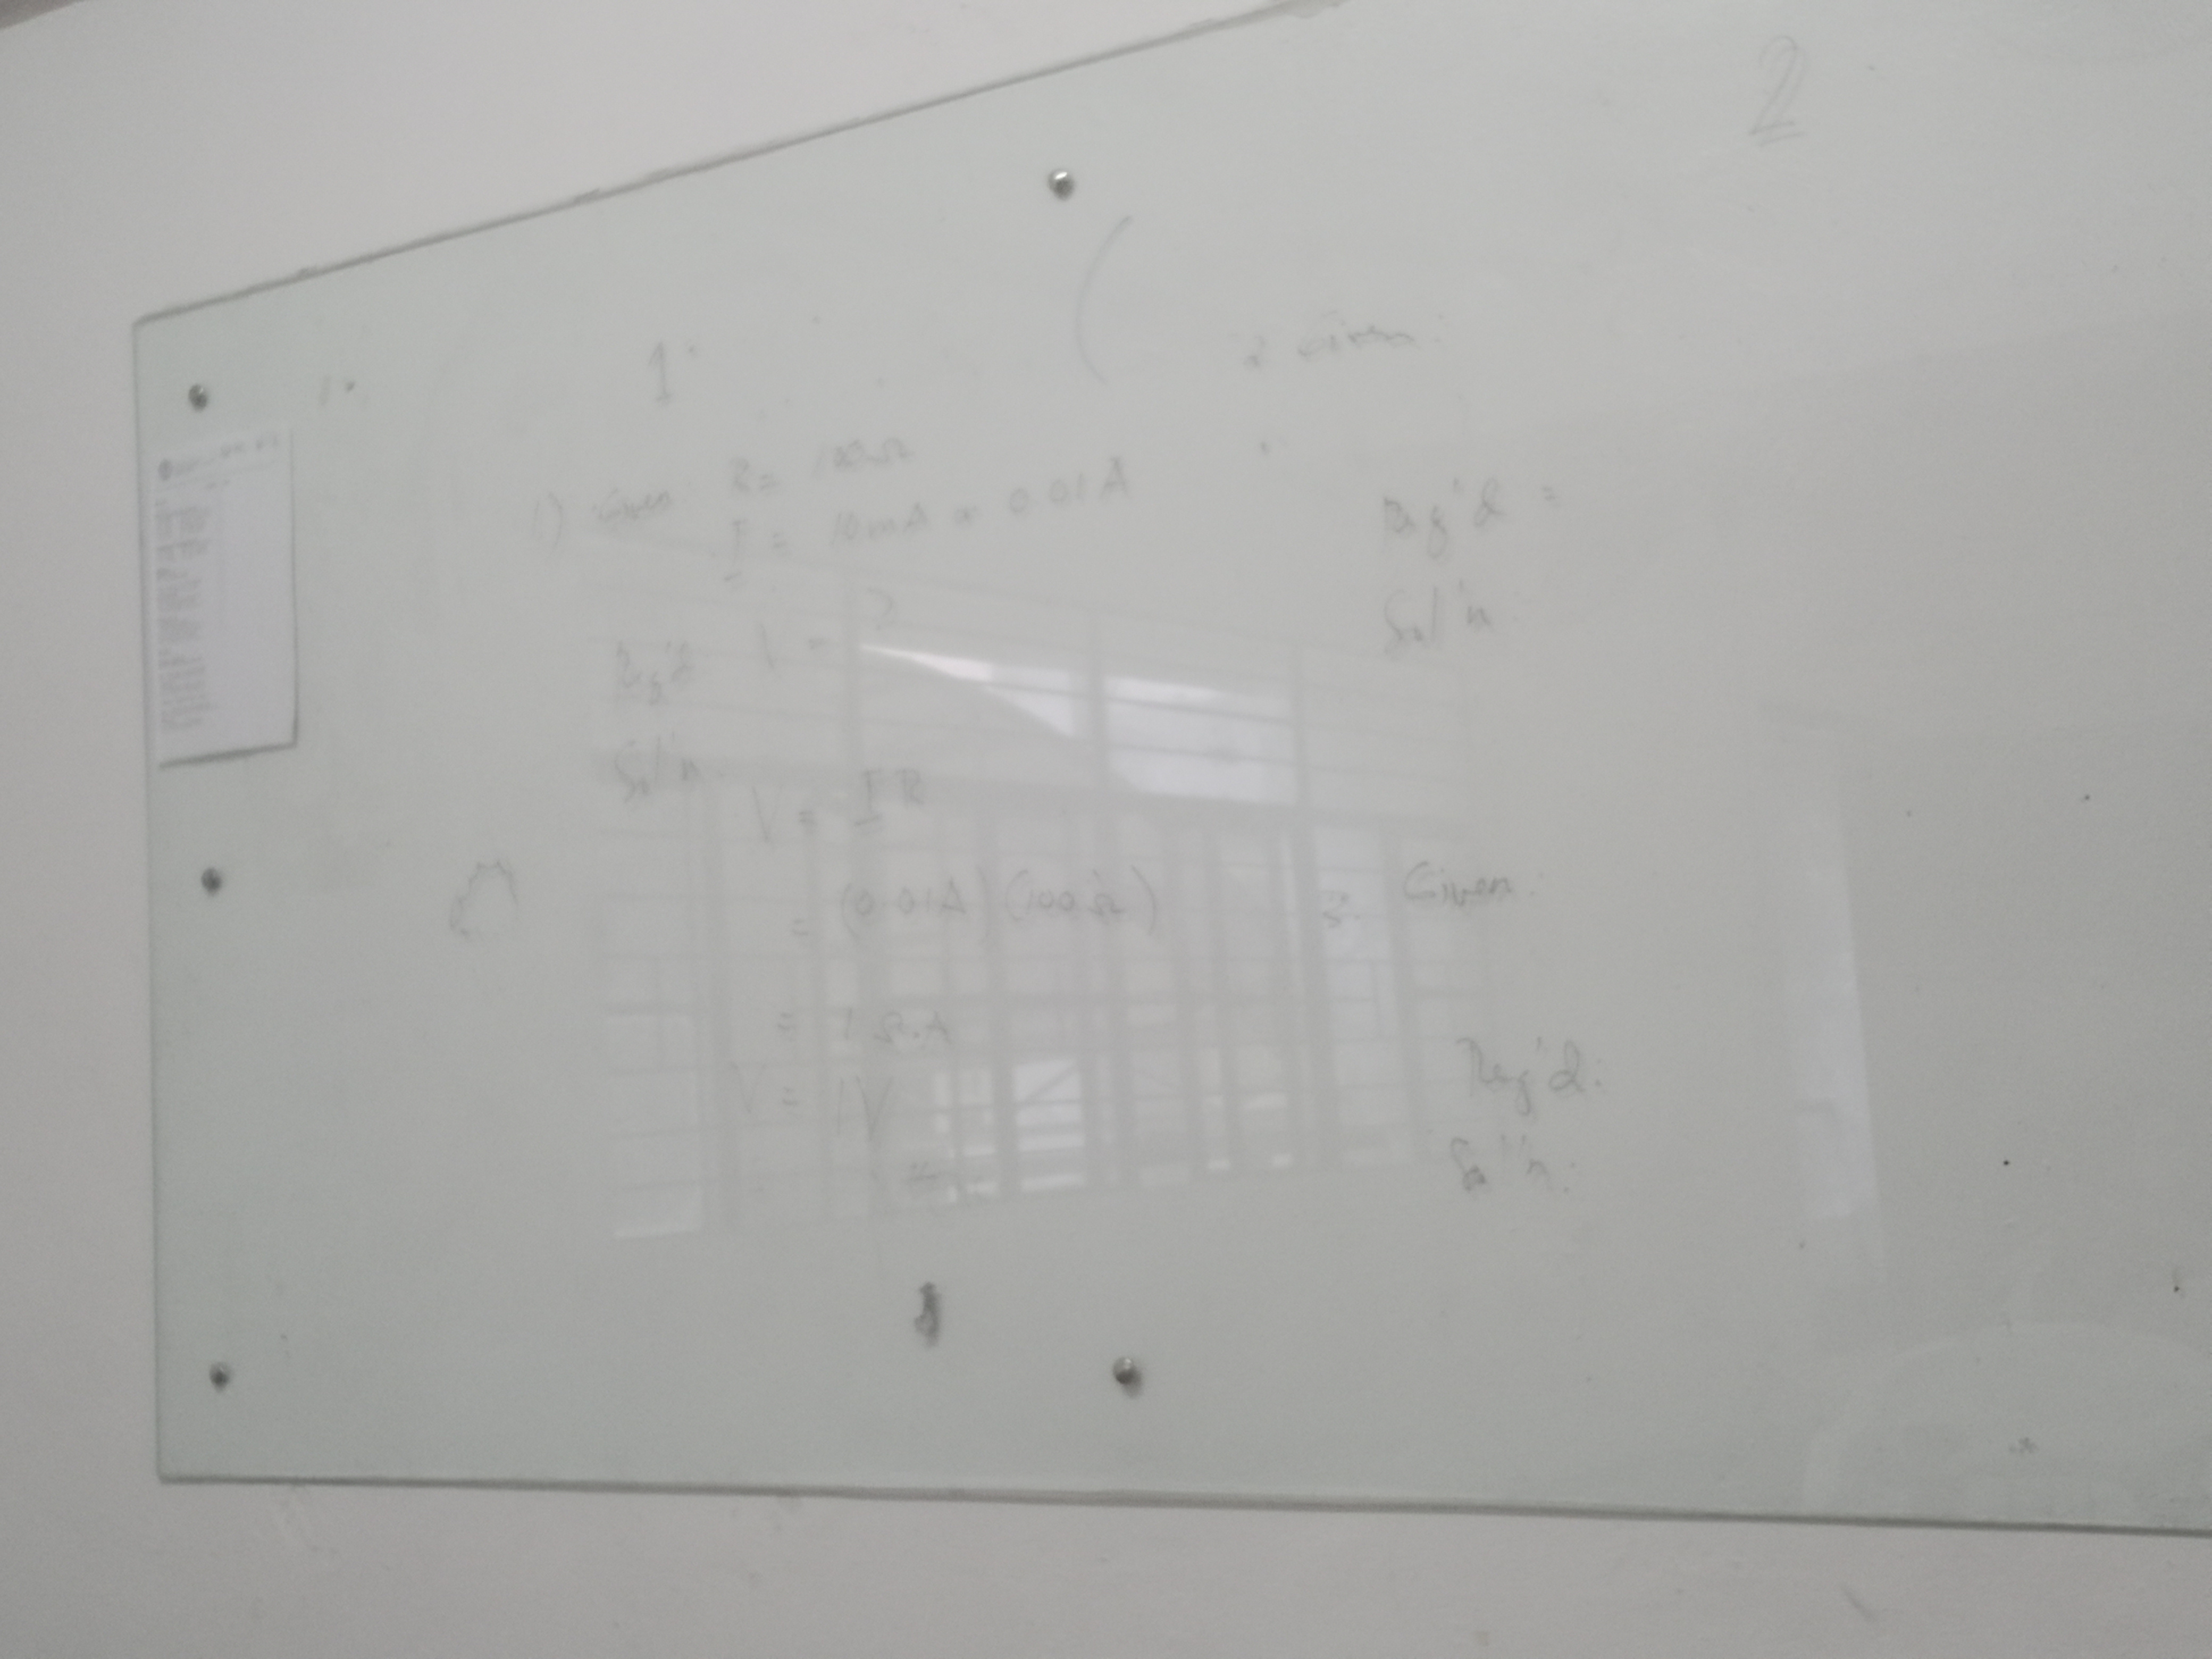 2
1.
1.
1) Given: R = 100Ω
I = 10mA or 0.01A
Req'd V = ?
Sol'n
V = IR
= (0.01A) (100Ω)
= 1 Ω.A
V = 1V
2. Given:
Req'd =
Sol'n
3. Given:
Req'd:
Sol'n: